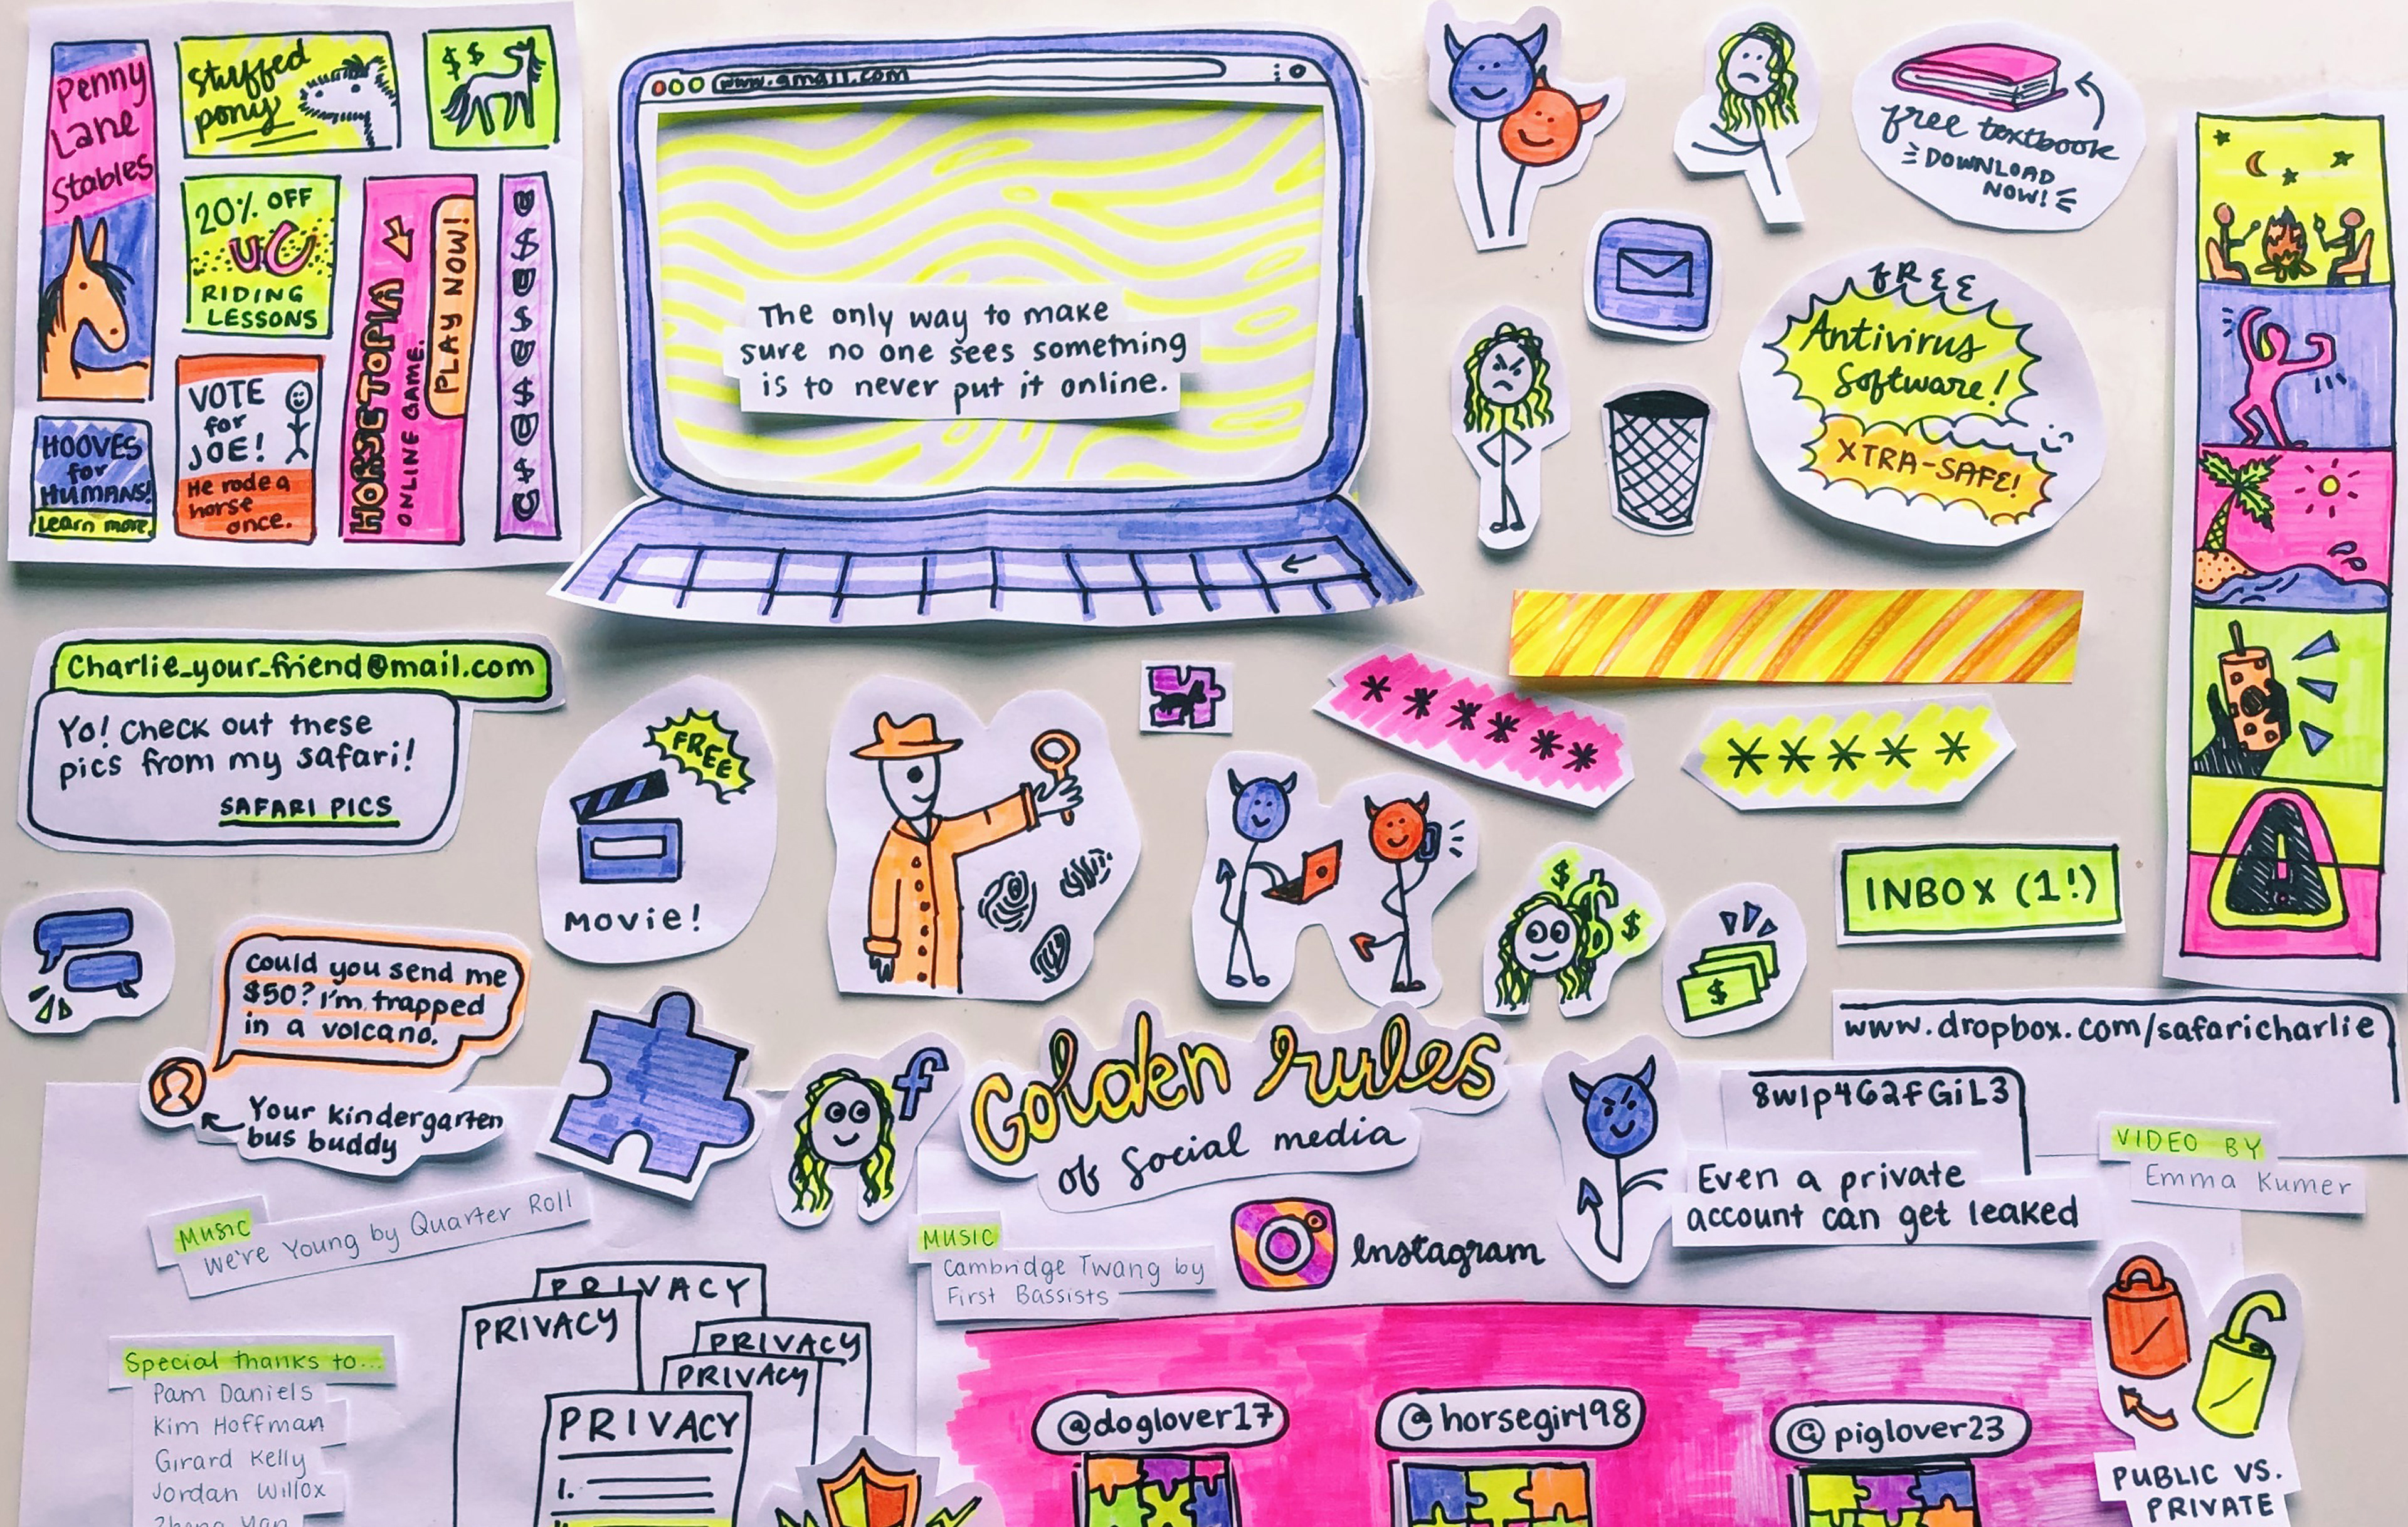 Penny
Lane
Stables
Stuffed
pony
$ $
20% OFF
RIDING
LESSONS
HORSETOPIA
ONLINE GAME.
PLAY NOW!
$
$
$
$
HOOVES
for
HUMANS!
Learn more
VOTE
for
JOE!
He rode a
horse
once.
www.gmail.com
The only way to make
sure no one sees something
is to never put it online.
free textbook
DOWNLOAD
NOW!
FREE
Antivirus
Software!
XTRA-SAFE!
Charlie_your_friend@mail.com
Yo! Check out these
pics from my safari!
SAFARI PICS
FREE
MOVIE!
******
*****
INBOX (1!)
$
$
$
$
Could you send me
$50? I'm trapped
in a volcano.
Your kindergarten
bus buddy
f
Golden rules
of social media
www.dropbox.com/safaricharlie
8w1p4G2fGiL3
Even a private
account can get leaked
VIDEO BY
Emma Kumer
MUSIC
We're Young by Quarter Roll
MUSIC
Cambridge Twang by
First Bassists
Instagram
PRIVACY
PRIVACY
PRIVACY
PRIVACY
PRIVACY
1.
Special thanks to...
Pam Daniels
Kim Hoffman
Girard Kelly
Jordan Willox
@doglover17
@horsegirl98
@piglover23
PUBLIC VS.
PRIVATE